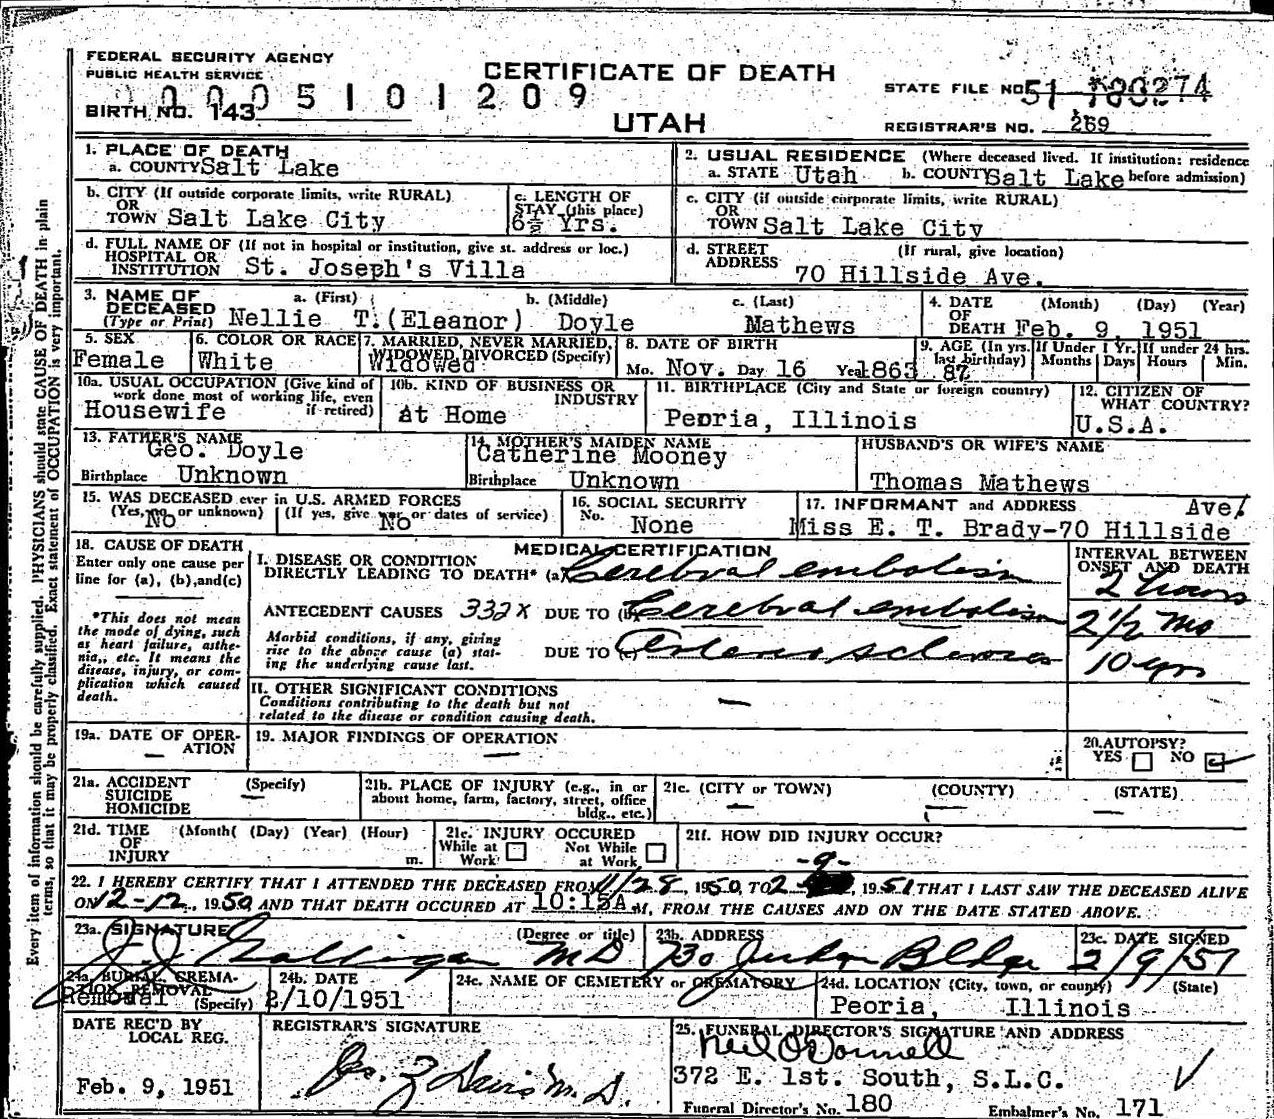 FEDERAL SECURITY AGENCY
PUBLIC HEALTH SERVICE
CERTIFICATE OF DEATH
UTAH
0005101209
BIRTH NO. 143
STATE FILE NO. 51
REGISTRAR'S NO. 269
1. PLACE OF DEATH
a. COUNTY Salt Lake
2. USUAL RESIDENCE (Where deceased lived. If institution: residence before admission)
a. STATE Utah b. COUNTY Salt Lake
b. CITY (If outside corporate limits, write RURAL)
OR
TOWN Salt Lake City
c. LENGTH OF
STAY (this place)
6½ Yrs.
c. CITY (if outside corporate limits, write RURAL)
OR
TOWN Salt Lake City
d. FULL NAME OF (If not in hospital or institution, give st. address or loc.)
HOSPITAL OR
INSTITUTION St. Joseph's Villa
d. STREET (If rural, give location)
ADDRESS 70 Hillside Ave.
3. NAME OF DECEASED
(Type or Print)
a. (First) b. (Middle) c. (Last)
Nellie T.(Eleanor) Doyle Mathews
4. DATE OF DEATH (Month) (Day) (Year)
Feb. 9, 1951
5. SEX
Female
6. COLOR OR RACE
White
7. MARRIED, NEVER MARRIED,
WIDOWED, DIVORCED (Specify)
Widowed
8. DATE OF BIRTH
Mo. Nov. Day 16 Year 1863
9. AGE (In yrs. last birthday)
87
If Under 1 Yr. Months Days
If under 24 hrs. Hours Min.
10a. USUAL OCCUPATION (Give kind of
work done most of working life, even
if retired)
Housewife
10b. KIND OF BUSINESS OR
INDUSTRY
At Home
11. BIRTHPLACE (City and State or foreign country)
Peoria, Illinois
12. CITIZEN OF
WHAT COUNTRY?
U.S.A.
13. FATHER'S NAME
Geo. Doyle
Birthplace Unknown
14. MOTHER'S MAIDEN NAME
Catherine Mooney
Birthplace Unknown
HUSBAND'S OR WIFE'S NAME
Thomas Mathews
15. WAS DECEASED ever in U.S. ARMED FORCES
(Yes, no or unknown) (If yes, give war or dates of service)
No No
16. SOCIAL SECURITY
No. None
17. INFORMANT and ADDRESS Ave.
Miss E. T. Brady-70 Hillside
18. CAUSE OF DEATH
Enter only one cause per
line for (a), (b),and(c)
*This does not mean
the mode of dying, such
as heart failure, asthe-
nia, etc. It means the
disease, injury, or com-
plication which caused
death.
MEDICAL CERTIFICATION
INTERVAL BETWEEN
ONSET AND DEATH
I. DISEASE OR CONDITION
DIRECTLY LEADING TO DEATH* (a) Cerebral embolism 2 hours
ANTECEDENT CAUSES 332X DUE TO (b) Cerebral embolism 2 1/2 mo
Morbid conditions, if any, giving
rise to the above cause (a) stat-
ing the underlying cause last.
DUE TO (c) Arteriosclerosis 10 yrs
II. OTHER SIGNIFICANT CONDITIONS
Conditions contributing to the death but not
related to the disease or condition causing death.
—
19a. DATE OF OPER-
ATION
—
19. MAJOR FINDINGS OF OPERATION
—
20. AUTOPSY?
YES NO
21a. ACCIDENT (Specify)
SUICIDE —
HOMICIDE
21b. PLACE OF INJURY (e.g., in or
about home, farm, factory, street, office
bldg., etc.)
21c. (CITY or TOWN) (COUNTY) (STATE)
— — —
21d. TIME (Month( (Day) (Year) (Hour)
OF
INJURY m.
21e. INJURY OCCURED
While at Work Not While at Work
21f. HOW DID INJURY OCCUR?
22. I HEREBY CERTIFY THAT I ATTENDED THE DECEASED FROM 11/28, 1950, TO 2-9, 1951 THAT I LAST SAW THE DECEASED ALIVE
ON 12-12, 1950 AND THAT DEATH OCCURED AT 10:15A.M, FROM THE CAUSES AND ON THE DATE STATED ABOVE.
23a. SIGNATURE (Degree or title)
J.J. Galligan MD
23b. ADDRESS
730 Judge Bldg
23c. DATE SIGNED
2/9/51
24a. BURIAL, CREMA-
TION, REMOVAL
(Specify)
Removal
24b. DATE
2/10/1951
24c. NAME OF CEMETERY or CREMATORY
24d. LOCATION (City, town, or county) (State)
Peoria, Illinois
DATE REC'D BY
LOCAL REG.
Feb. 9, 1951
REGISTRAR'S SIGNATURE
Davis M.D.
25. FUNERAL DIRECTOR'S SIGNATURE AND ADDRESS
Neil O'Donnell
372 E. 1st. South, S.L.C.
Funeral Director's No. 180 Embalmer's No. 171
Every item of information should be carefully supplied. PHYSICIANS should state CAUSE OF DEATH in plain
terms, so that it may be properly classified. Exact statement of OCCUPATION is very important.